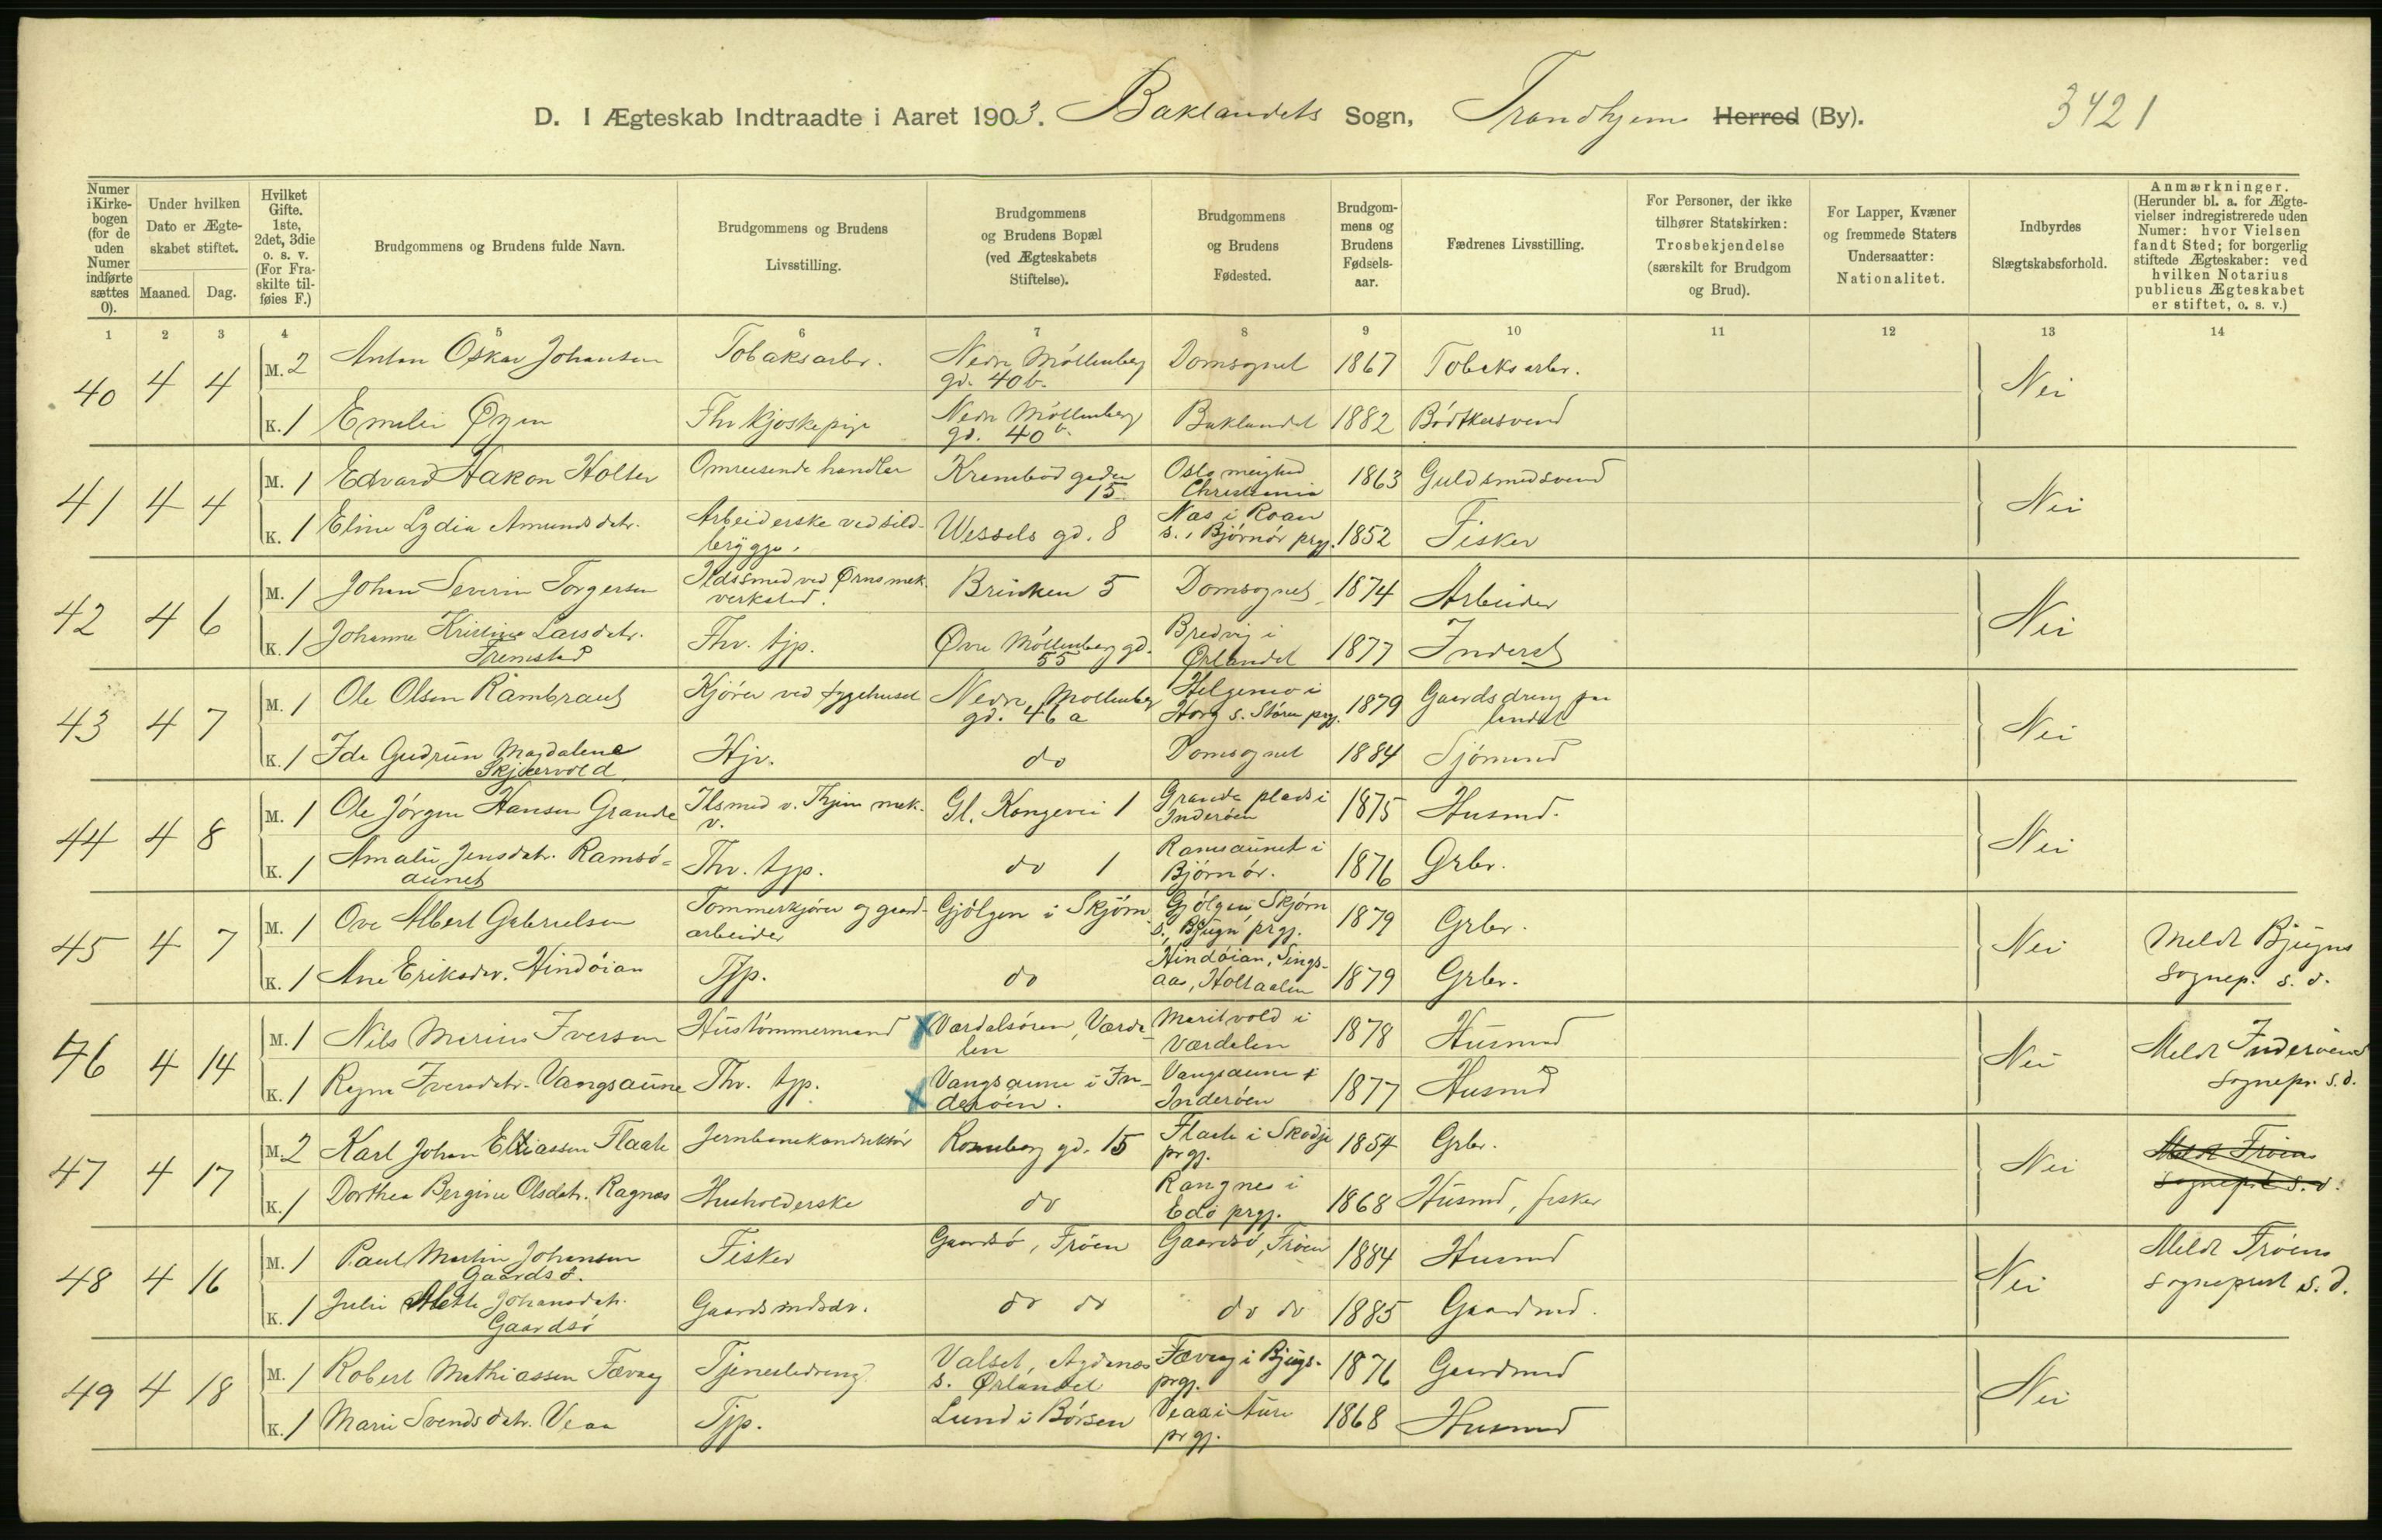 D. I Ægteskab Indtraadte i Aaret 1903. Baklandets Sogn, Trondhjem Herred (By). 3421
Numer i Kirkebogen (for de uden Numer indførte sættes 0).
Under hvilken Dato er Ægteskabet stiftet.
Maaned. Dag.
Hvilket Gifte. 1ste, 2det, 3die o. s. v. (For Fraskilte tilføies F.)
Brudgommens og Brudens fulde Navn.
Brudgommens og Brudens Livsstilling.
Brudgommens og Brudens Bopæl (ved Ægteskabets Stiftelse).
Brudgommens og Brudens Fødested.
Brudgommens og Brudens Fødselsaar.
Fædrenes Livsstilling.
For Personer, der ikke tilhører Statskirken: Trosbekjendelse (særskilt for Brudgom og Brud).
For Lapper, Kvæner og fremmede Staters Undersaatter: Nationalitet.
Indbyrdes Slægtskabsforhold.
Anmærkninger. (Herunder bl. a. for Ægtevielser indregistrerede uden Numer: hvor Vielsen fandt Sted; for borgerlig stiftede Ægteskaber: ved hvilken Notarius publicus Ægteskabet er stiftet, o. s. v.)
1 2 3 4 5 6 7 8 9 10 11 12 13 14
40 4 4 M. 2 Anton Oskar Johansen Tobaksarbr. Nedre Møllenberg gd. 40 b. Domsognet 1867 Tobaksarbr. Nei
K. 1 Emilie Øyen Fhv kjoskepige Nedre Møllenberg gd. 40 b. Baklandet 1882 Bødkersvend
41 4 4 M. 1 Edvard Hakon Holter Omreisende handler Krambodgaden 15 Oslo menighed Christiania 1863 Guldsmedsvend Nei
K. 1 Eline Lydia Amundsdatr. Arbeiderske ved sildbrygge. Wessels gd. 8 Næs i Roan s., Bjørnør prgj. 1852 Fisker
42 4 6 M. 1 Johan Severin Torgersen Ildsmed ved Ørns mek. verksted. Brinken 5 Domsognet 1874 Arbeider Nei
K. 1 Johanne Kristine Larsdatr. Fremstad Fhv. tjp. Øvre Møllenberg gd. 55 Bredvig i Ørlandet 1877 Inderst
43 4 7 M. 1 Ole Olsen Rambraut Kjører ved sygehuset Nedre Møllenberg gd. 46 a Helgemo i Horg s. Støren prgj. 1879 Gaardsdreng paa landet Nei
K. 1 Ida Gudrun Magdalene Skjærvold Hjv. do Domsognet 1884 Sjømand
44 4 8 M. 1 Ole Jørgen Hansen Grande Ilsmed v. Thjem mek. v. Gl. Kongevei 1 Grande plads i Inderøen 1875 Husmd. Nei
K. 1 Amalie Jensdatr. Ramsøaunet Fhv. tjp. do 1 Ramsaunet i Bjørnør. 1876 Grbr.
45 4 7 M. 1 Ove Albert Gabrielsen Tommerkjører og gaardarbeider Gjølgen i Skjørn Gjølgen Skjørn s., Bjugn prgj. 1879 Grbr. Nei Meldt Bjugns sognep. s. d.
K. 1 Ane Eriksdtr. Hindøian Tjp. do Hindøian, Singsaas, Holtaalen 1879 Grbr.
46 4 14 M. 1 Nils Marius Iversen Hustømmermand Værdalsøren, Værdalen Maritvold i Værdalen 1878 Husmd Nei Meldt Inderøens sognepr. s. d.
K. 1 Regine Iversdatr. Vangsaune Fhv. tjp. Vangsaune i Inderøen. Vangsaune i Inderøen 1877 Husmd
47 4 17 M. 2 Karl Johan Elliassen Flaate Jernbanekonduktør Rosenborg gd. 15 Flaate i Skodje prgj. 1854 Grbr. Nei Meldt Frøiens sogneprst s. d.
K. 1 Dorthea Bergine Olsdatr. Ragnes Husholderske do Rangnes i Edø prgj. 1868 Husmd, fisker
48 4 16 M. 1 Paul Martin Johansen Gaardsø. Fisker Gaardsø, Frøien Gaardsø, Frøien 1884 Husmd Nei Meldt Frøiens sogneprst s. d.
K. 1 Julie Mette Johansdatr. Gaardsø Gaardmdsdr. do do do do 1885 Gaardmd.
49 4 18 M. 1 Robert Mathiassen Fævaag Tjenestedreng Valset, Agdenes s. Ørlandet Fævaag i Bjugn prgj. 1876 Gaardmd Nei
K. 1 Marie Svendsdatr. Veaa Tjp. Lund i Børsen Veaa i Aure prgj. 1868 Husmd